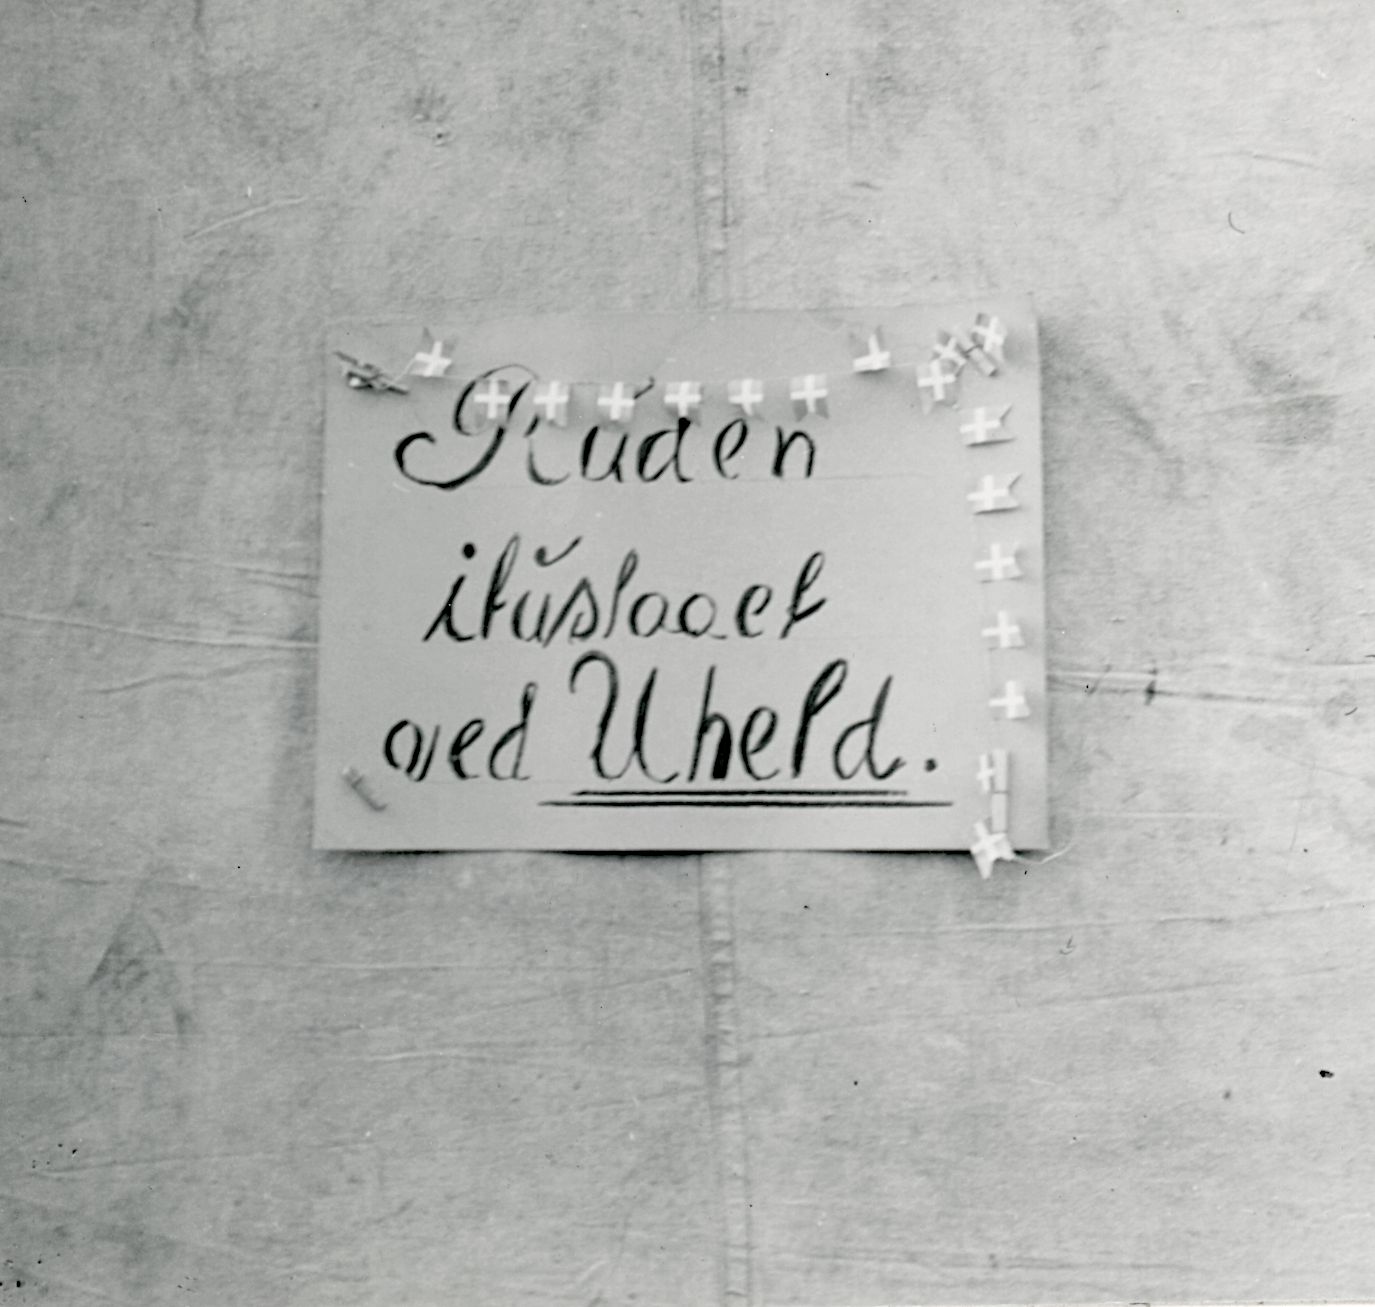 Ruden
itŭslaaet
ved Uheld.